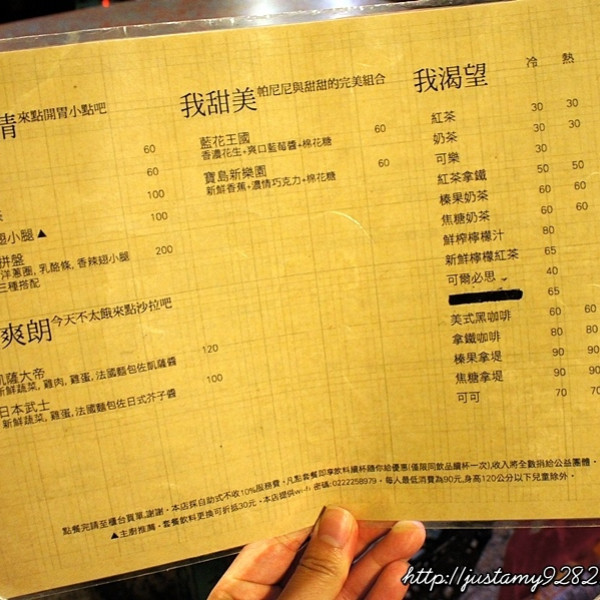 來點開胃小點吧
60
60
100
翅小腿▲ 100
拼盤 200
洋蔥圈, 乳酪條, 香辣翅小腿
三種搭配
爽朗 今天不太餓來點沙拉吧
凱薩大帝 120
新鮮蔬菜, 雞肉, 雞蛋, 法國麵包佐凱薩醬
日本武士 100
新鮮蔬菜, 雞蛋, 法國麵包佐日式芥子醬
我甜美 帕尼尼與甜甜的完美組合
藍花王國 60
香濃花生+爽口藍莓醬+棉花糖
寶島新樂園 60
新鮮香蕉+濃情巧克力+棉花糖
我渴望 冷 熱
紅茶 30 30
奶茶 30 30
可樂 30
紅茶拿鐵 50 50
榛果奶茶 60 60
焦糖奶茶 60 60
鮮榨檸檬汁 80
新鮮檸檬紅茶 65
可爾必思 40
65
美式黑咖啡 60 60
拿鐵咖啡 80 80
榛果拿堤 90 90
焦糖拿堤 90 90
可可 70 70
點餐完請至櫃台買單,謝謝。本店採自助式不收10%服務費。凡點套餐即享飲料續杯隨你給優惠(僅限同飲品續杯一次),收入將全數捐給公益團體。
▲主廚推薦。套餐飲料更換可折抵30元。本店提供wi-fi 密碼:0222258979。每人最低消費為90元,身高120公分以下兒童除外。
http://justamy9282